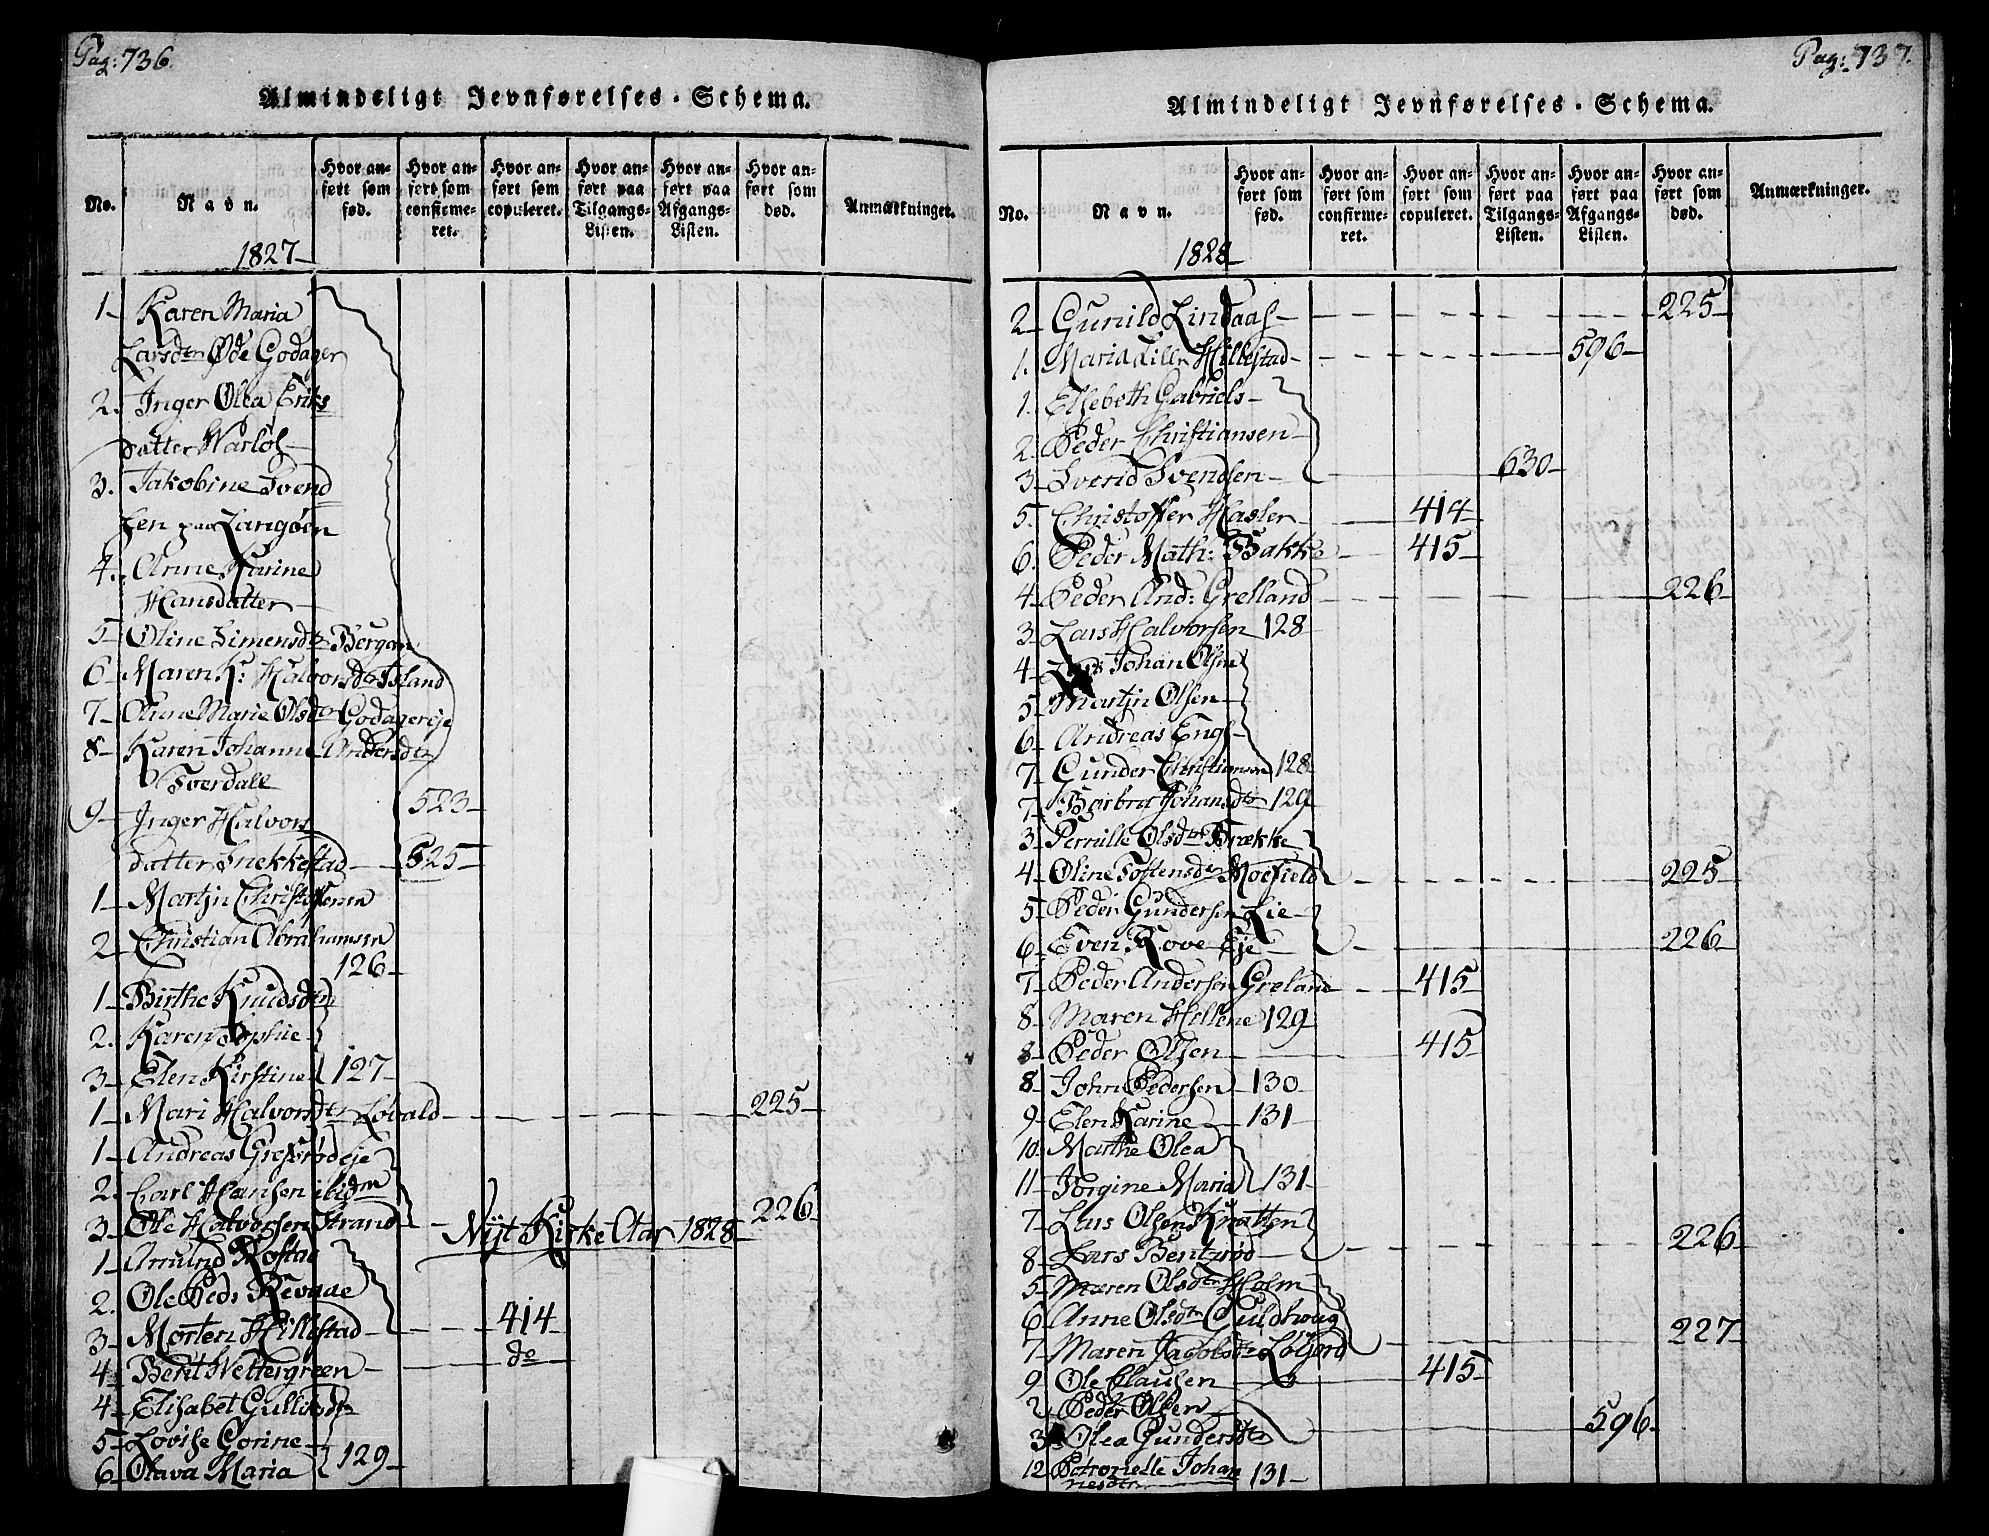 Pag: 736.
Almindeligt Jevnførelses-Schema.
No.
Navn.
1827
Hvor anført som fød.
Hvor anført som confirmeret.
Hvor anført som copuleret.
Hvor anført paa Tilgangs-Listen.
Hvor anført paa Afgangs-Listen.
Hvor anført som død.
Anmærkninger.
1 Karen Maria
Larsdtr Øde Godager
2. Inger Olea Eriks
datter Warløs
3. Jakobine Svend
sen paa Langøen
4. Anne Karine
Hansdatter
5 Oline Simensdtr Bergan
6 Maren K: Halvorsdtr Island
7 Anne Marie Olsdtr Godagereje
8 Karen Johanne Andersdtr
Sverdale 523
9 Inger Halvors
datter Snekkestad 525
1 Martin Christophersen
2 Christian Abrahamsen
126
1 Birthe Knudsdtr
2. Karen Sophie
3 Elen Kirstine 127
1 Mari Halvorsdtr Løvald 225
1 Andreas Gresrødeje
2. Carl Hansen ibidm
3 Ole Halvorsen Strand 226
Nÿt Kirke Aar 1828
1 Amund Rostad
2. Ole Peds Revaae
3 Morten Hillestad 414
4 Berit Wettergreen do
4 Elisabet Gulliksdtr
5 Lovise Corine
6 Olava Maria 129
Pag: 737.
Almindeligt Jevnførelses-Schema.
No.
Navn.
1828
Hvor anført som fød.
Hvor anført som confirmeret.
Hvor anført som copuleret.
Hvor anført paa Tilgangs-Listen.
Hvor anført paa Afgangs-Listen.
Hvor anført som død.
Anmærkninger.
2 Gunild Lindaas 225
1. Maria Hillestad 596
1. Elsebeth Gabriels
2. Peder Christiansen
3 Sverid Svendsen 630
5. Christoffer Hasler 414
6. Peder Math: Bakke 415
4 Peder And: Grelland 226
3 Lars Halvorsen 128
4 Johan Olsen
5 Martin Olsen
6 Andreas Engs
7 Gunder Christiansen 128
7 Barbra Johansdtr 129
3 Pernille Olsdtr Brække
4 Oline Tostensdtr Moefield 225
5 Peder Gundersen Lie
6 Even Rove Eje 226
7 Peder Andersen Greland 415
8 Maren Hellene 129
8 Peder Olsen 415
8 John Pedersen 130
9 Elen Karine 131
10. Marthe Olea
11 Jorgine Maria 131
7 Lars Olsen Knatten
8 Lars Bentzrød 226
5 Maren Olsdtr Holm
6 Anne Olsdtr Guldhoug
7 Maren Jacobsdtr Løfjord 227
9 Ole Clausen 415
2 Peder Olsen
3 Olea Gundersdtr 596
12 Petronelle Johan
nesdtr 131